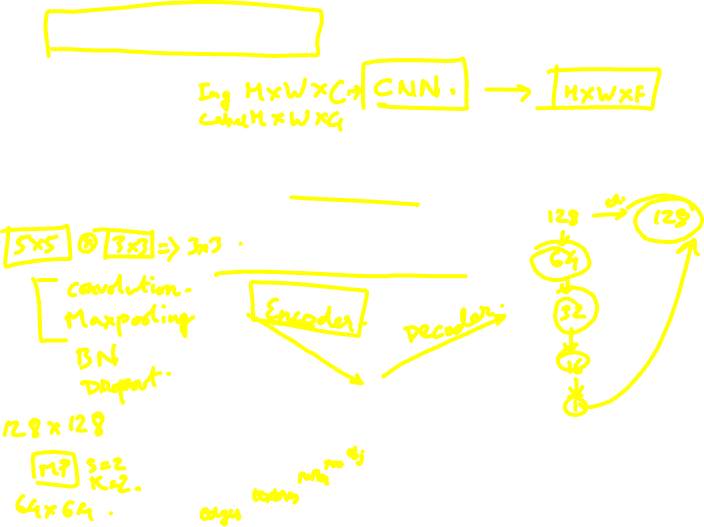 Img H×W×C → CNN. → H×W×F
Label H×W×G
5×5 ⊗ 3×3 => 3×3.
Convolution.
Maxpooling
BN
Dropout.
128 × 128
MP S=2
K=2.
64×64.
Encoder.
Decoder.
edges
textures
obj
128 → 128
64
32
16